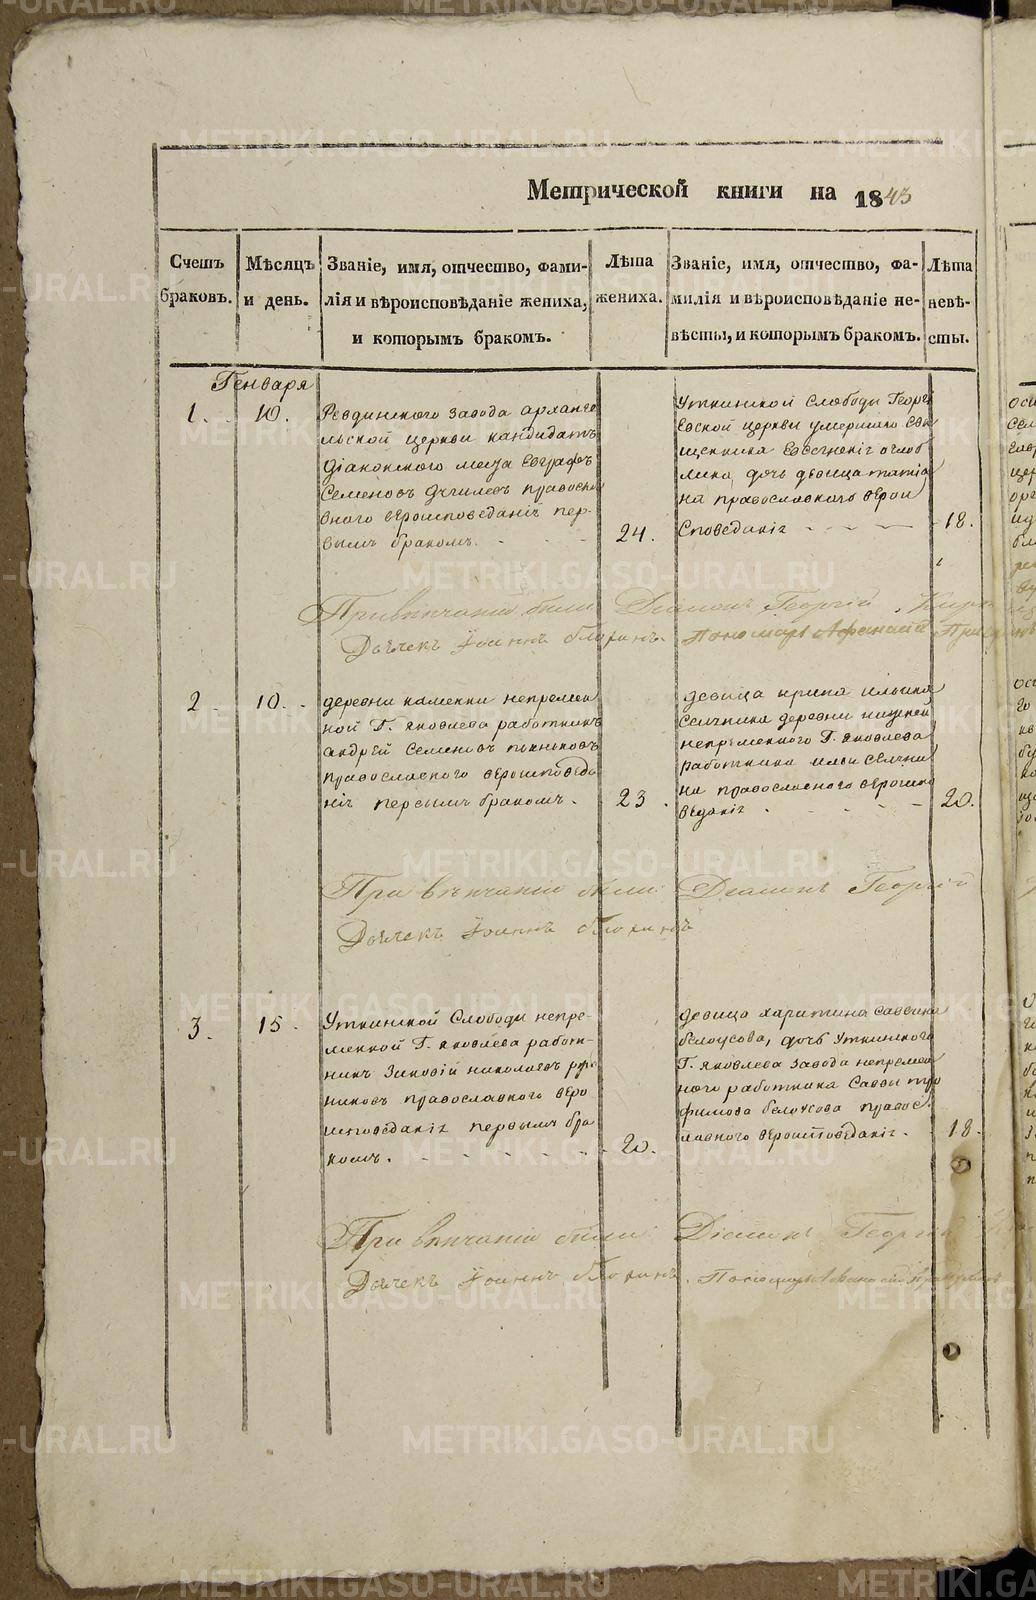 Метрической книги на 1843
Счетъ браковъ.
Мѣсяцъ и день.
Званіе, имя, отчество, фами-
лія и вѣроисповѣданіе жениха,
и которымъ бракомъ.
Лѣта жениха.
Званіе, имя, отчество, фа-
милія и вѣроисповѣданіе не-
вѣсты, и которымъ бракомъ.
Лѣта невѣ-
сты.
Генваря
1. 10.
Ревдинского завода арханге
льской церкви кандидатъ
діаконского места Евграфъ
Семеновъ православ
вного вероисповеданіи пер-
вымъ бракомъ.
24.
Уткинской Слободы Георгі
Евской церкви умершаго Свя
щенника
дочь девица татіа
на православного верои
споведаніе
18.
При вѣнчаніи были Діаконъ Георгій
Дьячекъ Іоаннъ блохинъ. Пономарь Афанасій
2. 10.
деревни каменки непремен
ной Г. Яковлева работникъ
андрей Семеновъ
православного вероисповеда
ніе первымъ бракомъ.
23.
девица ирина ильина
деревни нижней
непременного Г. Яковлева
работника ильи
на православного вероиспо
веданіе
20.
При вѣнчаніи были Діаконъ Георгій
Дьячекъ Іоаннъ блохинъ
3. 15.
Уткинской Слободы непре-
менной Г. Яковлева работ-
никъ Зиновій николаевъ
никовъ православного веро
исповеданіе первымъ бра
комъ.
20.
девица харитина саввина
белоусова, дочь Уткинского
Г. Яковлева завода непремен
ного работника Саввы тро
фимова белоусова правос
лавного вероисповеданіе.
18.
При вѣнчаніи были Діаконъ Георгій
Дьячекъ Іоаннъ блохинъ. Пономарь Афанасій
METRIKI.GASO-URAL.RU